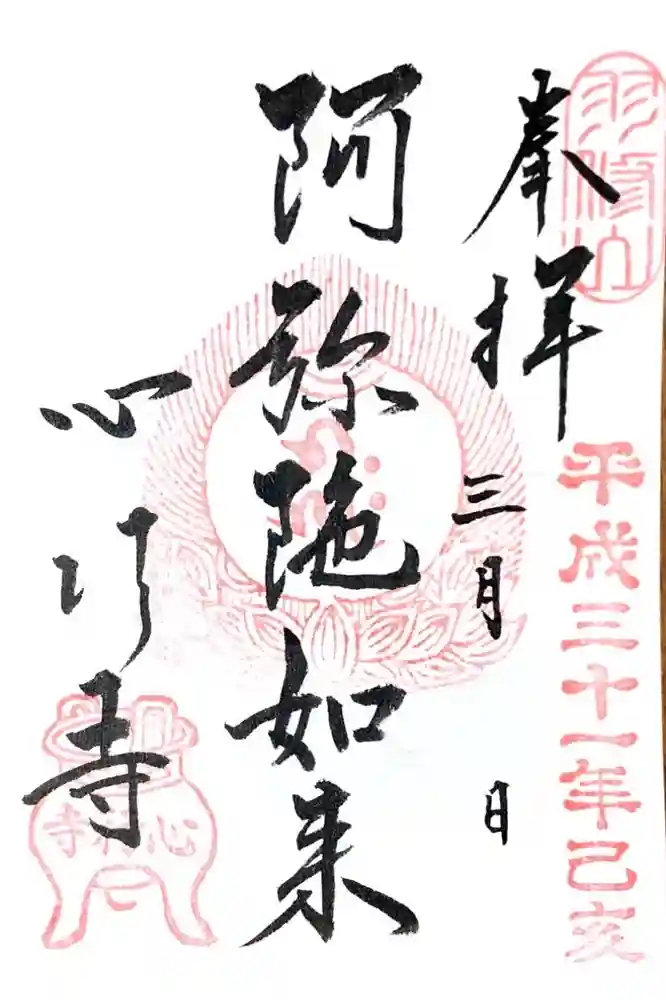 羽休山
奉拝
平成三十一年己亥
三月 日
阿弥陁如来
心行寺
心行寺